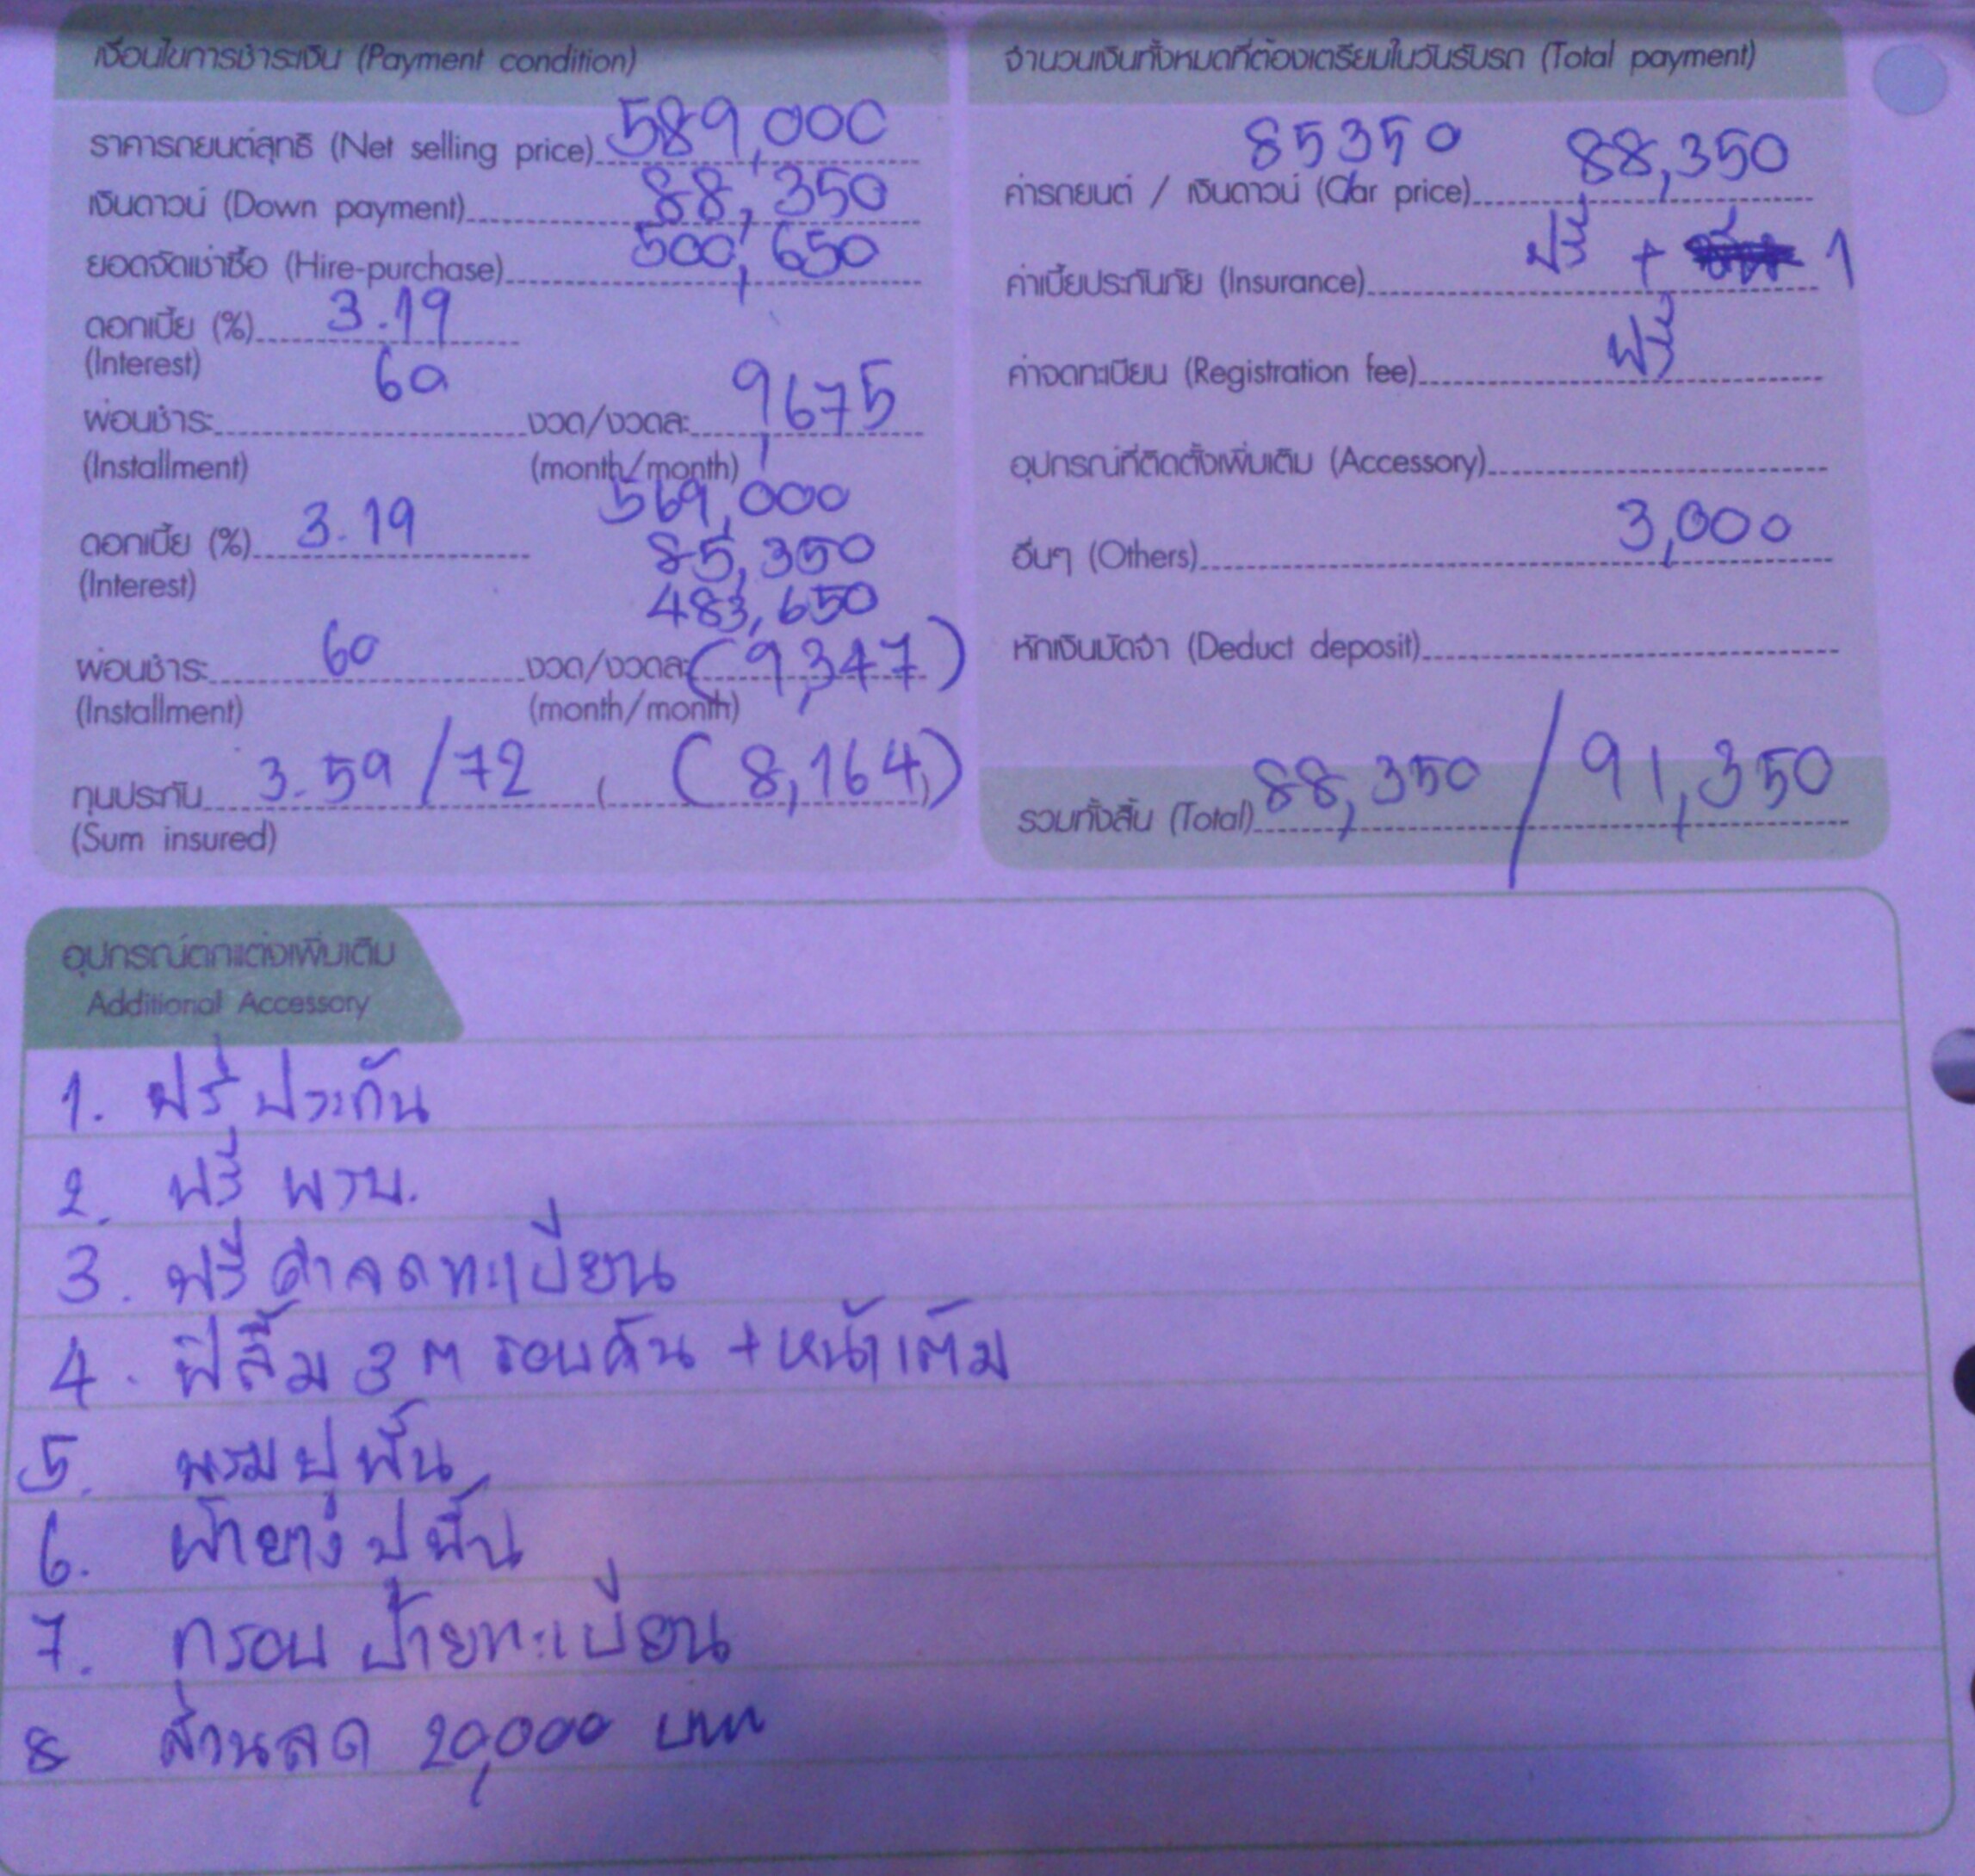 เงื่อนไขการชำระเงิน (Payment condition)
ราคารถยนต์สุทธิ (Net selling price) 589,000
เงินดาวน์ (Down payment) 88,350
ยอดจัดเช่าซื้อ (Hire-purchase) 500,650
ดอกเบี้ย (%) 3.19
(Interest)
60
ผ่อนชำระ งวด/งวดละ 9,675
(Installment) (month/month)
569,000
ดอกเบี้ย (%) 3.19
85,350
(Interest)
483,650
ผ่อนชำระ 60 งวด/งวดละ (9,347)
(Installment) (month/month)
ทุนประกัน 3.59/72 ( (8,164)
(Sum insured)
จำนวนเงินทั้งหมดที่ต้องเตรียมในวันรับรถ (Total payment)
85350 88,350
ค่ารถยนต์ / เงินดาวน์ (Car price)
ค่าเบี้ยประกันภัย (Insurance) ฟรี + 1
ค่าจดทะเบียน (Registration fee) ฟรี
อุปกรณ์ที่ติดตั้งเพิ่มเติม (Accessory)
อื่นๆ (Others) 3,000
หักเงินมัดจำ (Deduct deposit)
รวมทั้งสิ้น (Total) 88,350 / 91,350
อุปกรณ์ตกแต่งเพิ่มเติม
Additional Accessory
1. ฟรี ประกัน
2. ฟรี พรบ.
3. ฟรี ค่าจดทะเบียน
4. ฟิล์ม 3M รอบคัน + หน้าเต็ม
5. พรมปูพื้น
6. ผ้ายางปูพื้น
7. กรอบป้ายทะเบียน
8 ส่วนลด 20,000 บาท